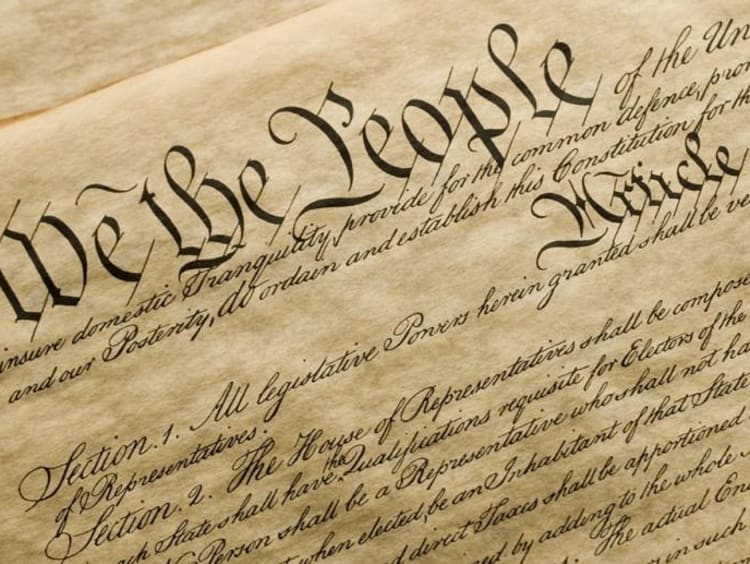 We the People of the Un
insure domestic Tranquility, provide for the common defence, pro
and our Posterity, do ordain and establish this Constitution for th
Article
Section. 1. All legislative Powers herein granted shall be ve
of Representatives.
Section. 2. The House of Representatives shall be compose
ch State shall have the Qualifications requisite for Electors of the
Person shall be a Representative who shall not ha
when elected, be an Inhabitant of that State
d direct Taxes shall be apportioned
ed by adding to the whole
The actual En
in such